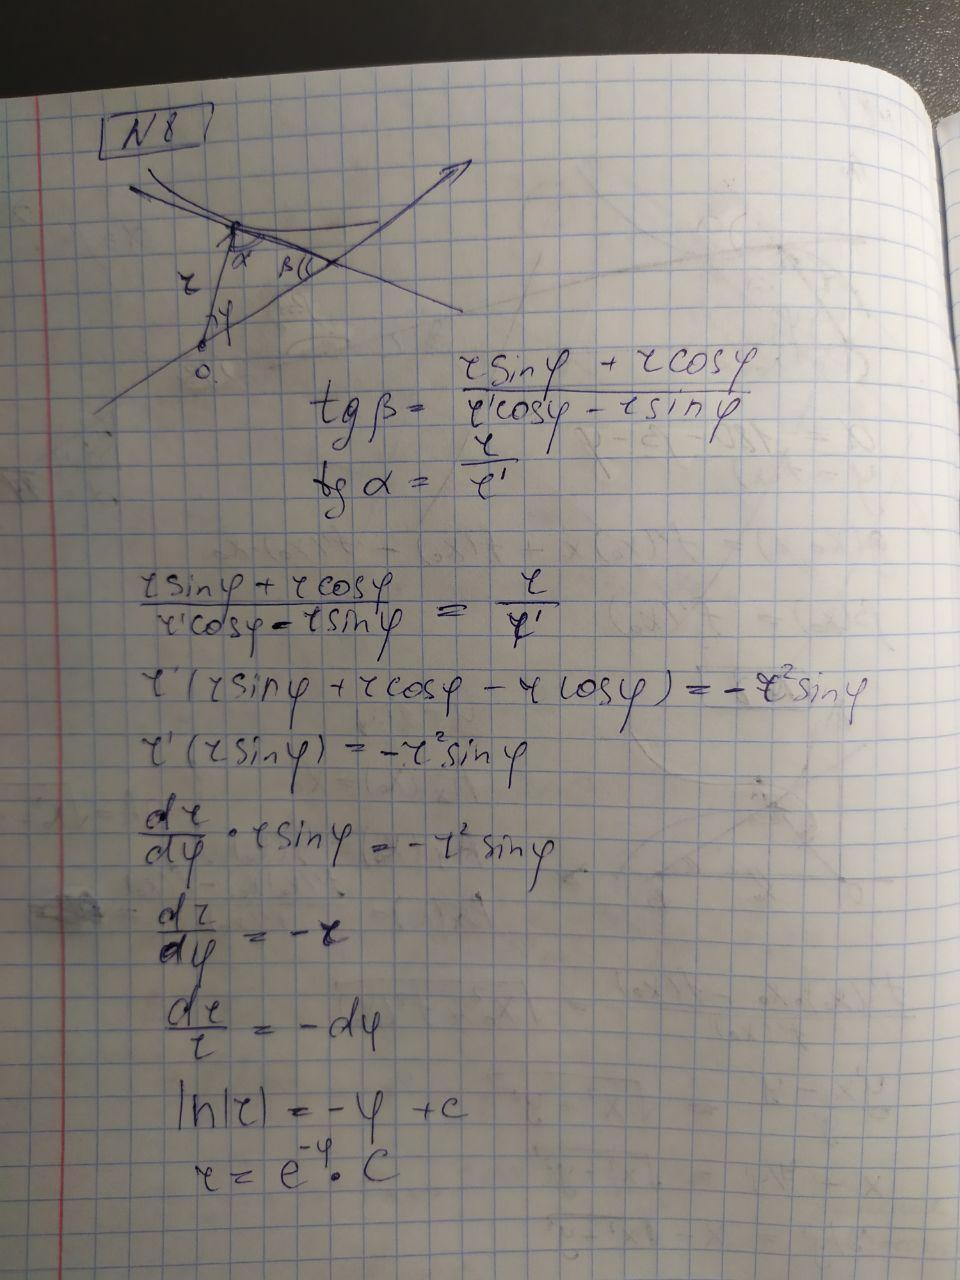 N 8
r
α
β
φ
O
tg β = (r sin φ + r cos φ)/(r' cos φ - r sin φ)
tg α = r/r'
(r sin φ + r cos φ)/(r' cos φ - r sin φ) = r/r'
r' (r sin φ + r cos φ - r cos φ) = - r² sin φ
r' (r sin φ) = - r² sin φ
dr/dφ · r sin φ = - r² sin φ
dr/dφ = - r
dr/r = - dφ
ln|r| = - φ + c
r = e^(-φ) · C